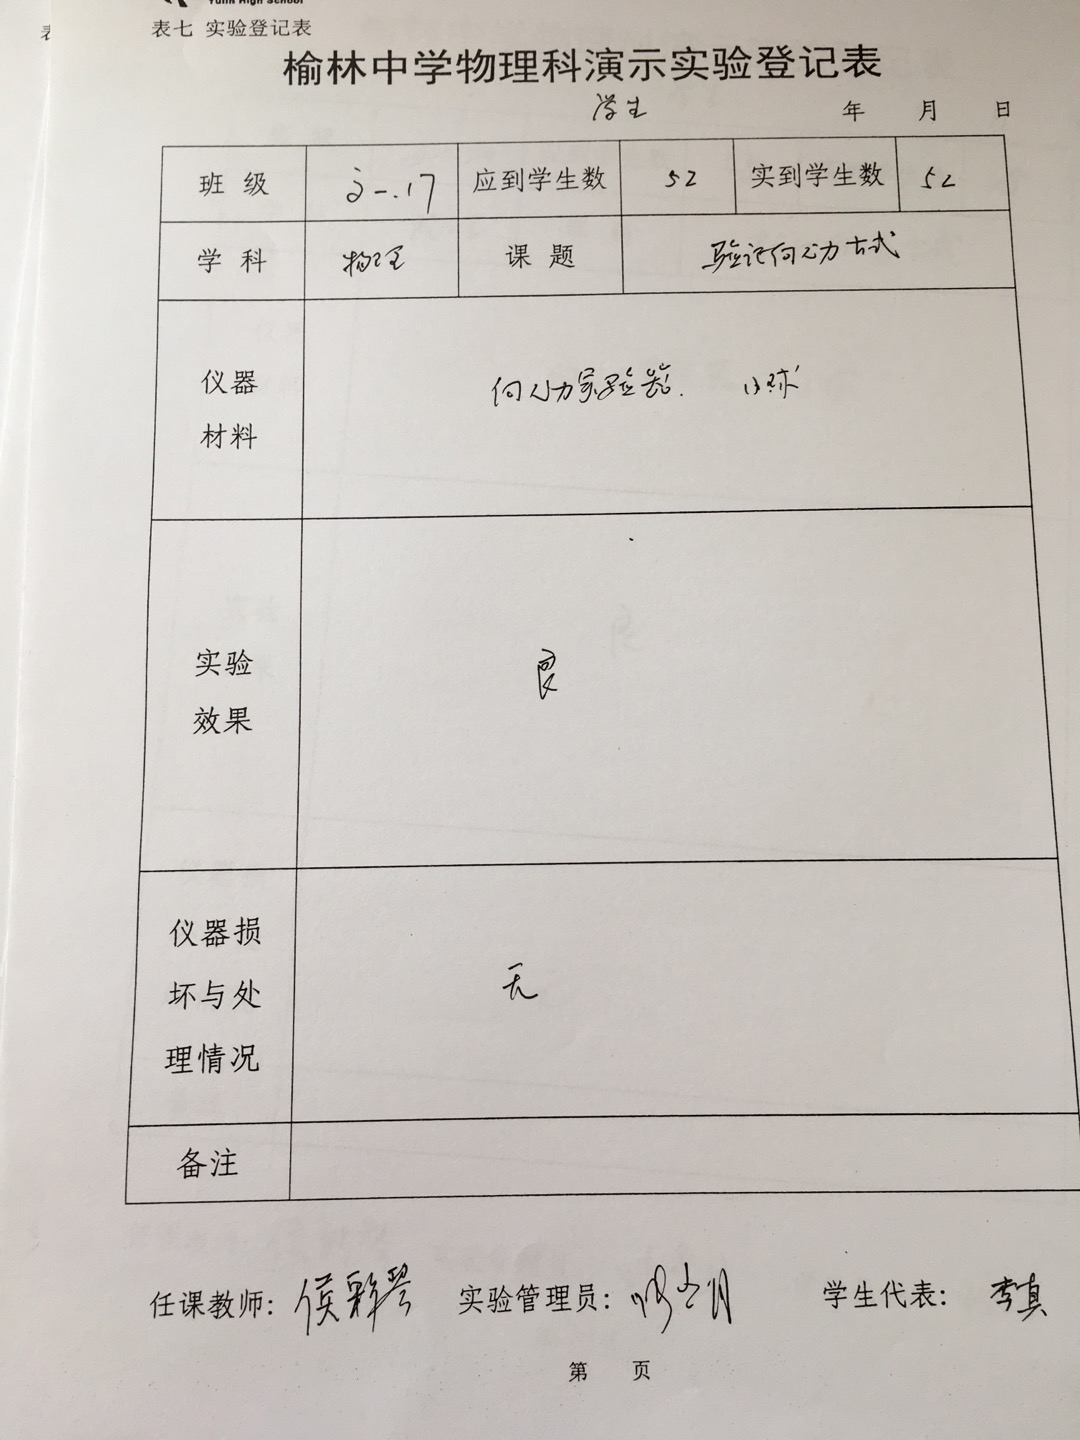 Yulin High School
表七 实验登记表
榆林中学物理科演示实验登记表
学生 年 月 日
班 级 高一.17 应到学生数 52 实到学生数 52
学 科 物理 课 题 验证向心力公式
仪器
材料
向心力实验器. 小球
实验
效果
良
仪器损
坏与处
理情况
无
备注
任课教师: 侯彩琴 实验管理员: 学生代表: 李真
第 页